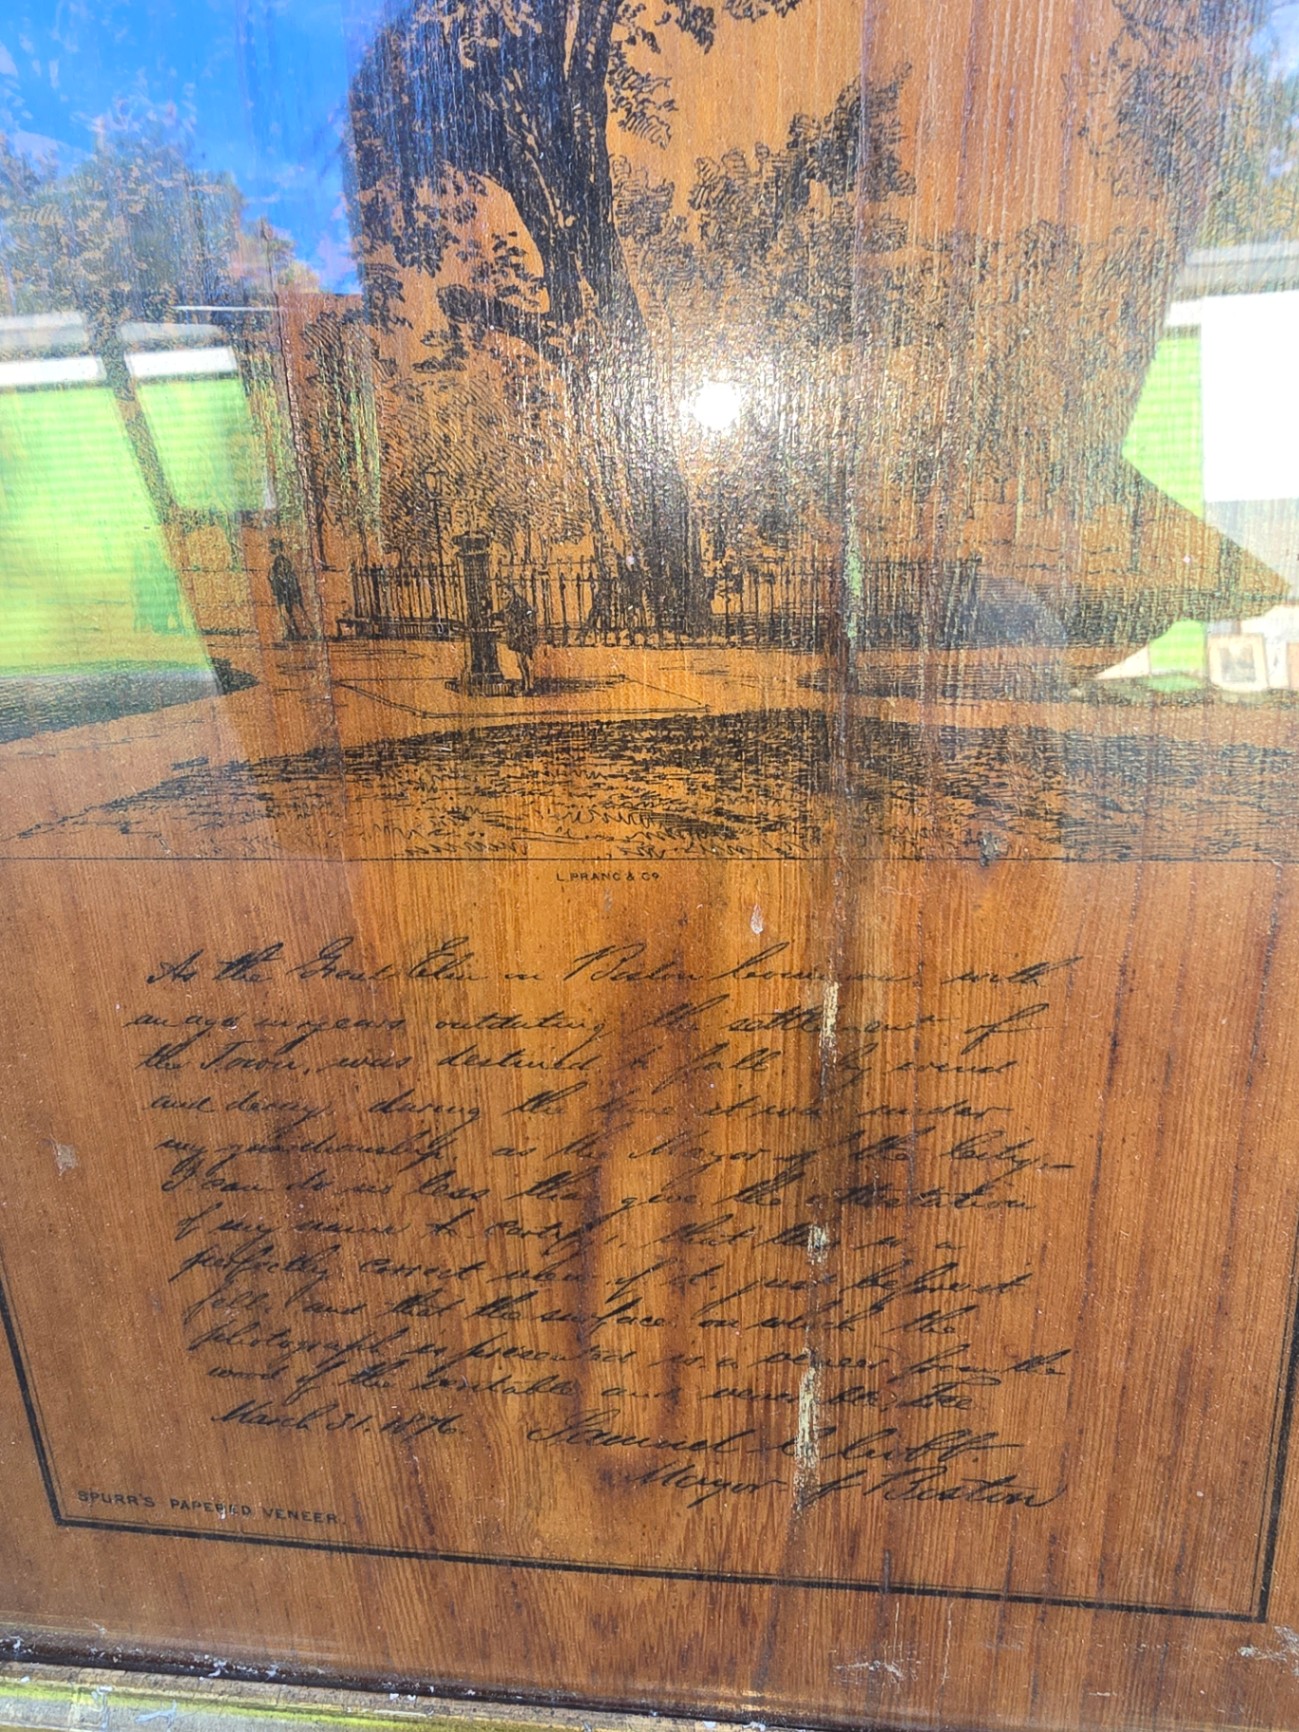 L. PRANG & Co
As the Great Elm on Boston Common with
an age in years outdating the settlement of
the Town, was destined to fall by
and decay, during the time it was under
my guardianship, as the Mayor of the City,—
I can do no less than give the attestation
of my name to certify, that this is a
perfectly correct view of it, just before it
fell, and that the surface on which the
photograph is presented is a veneer from the
wood of the veritable and venerable Tree.
March 31. 1876.
Samuel C. Cobb.
Mayor of Boston
SPURR'S PAPERED VENEER.